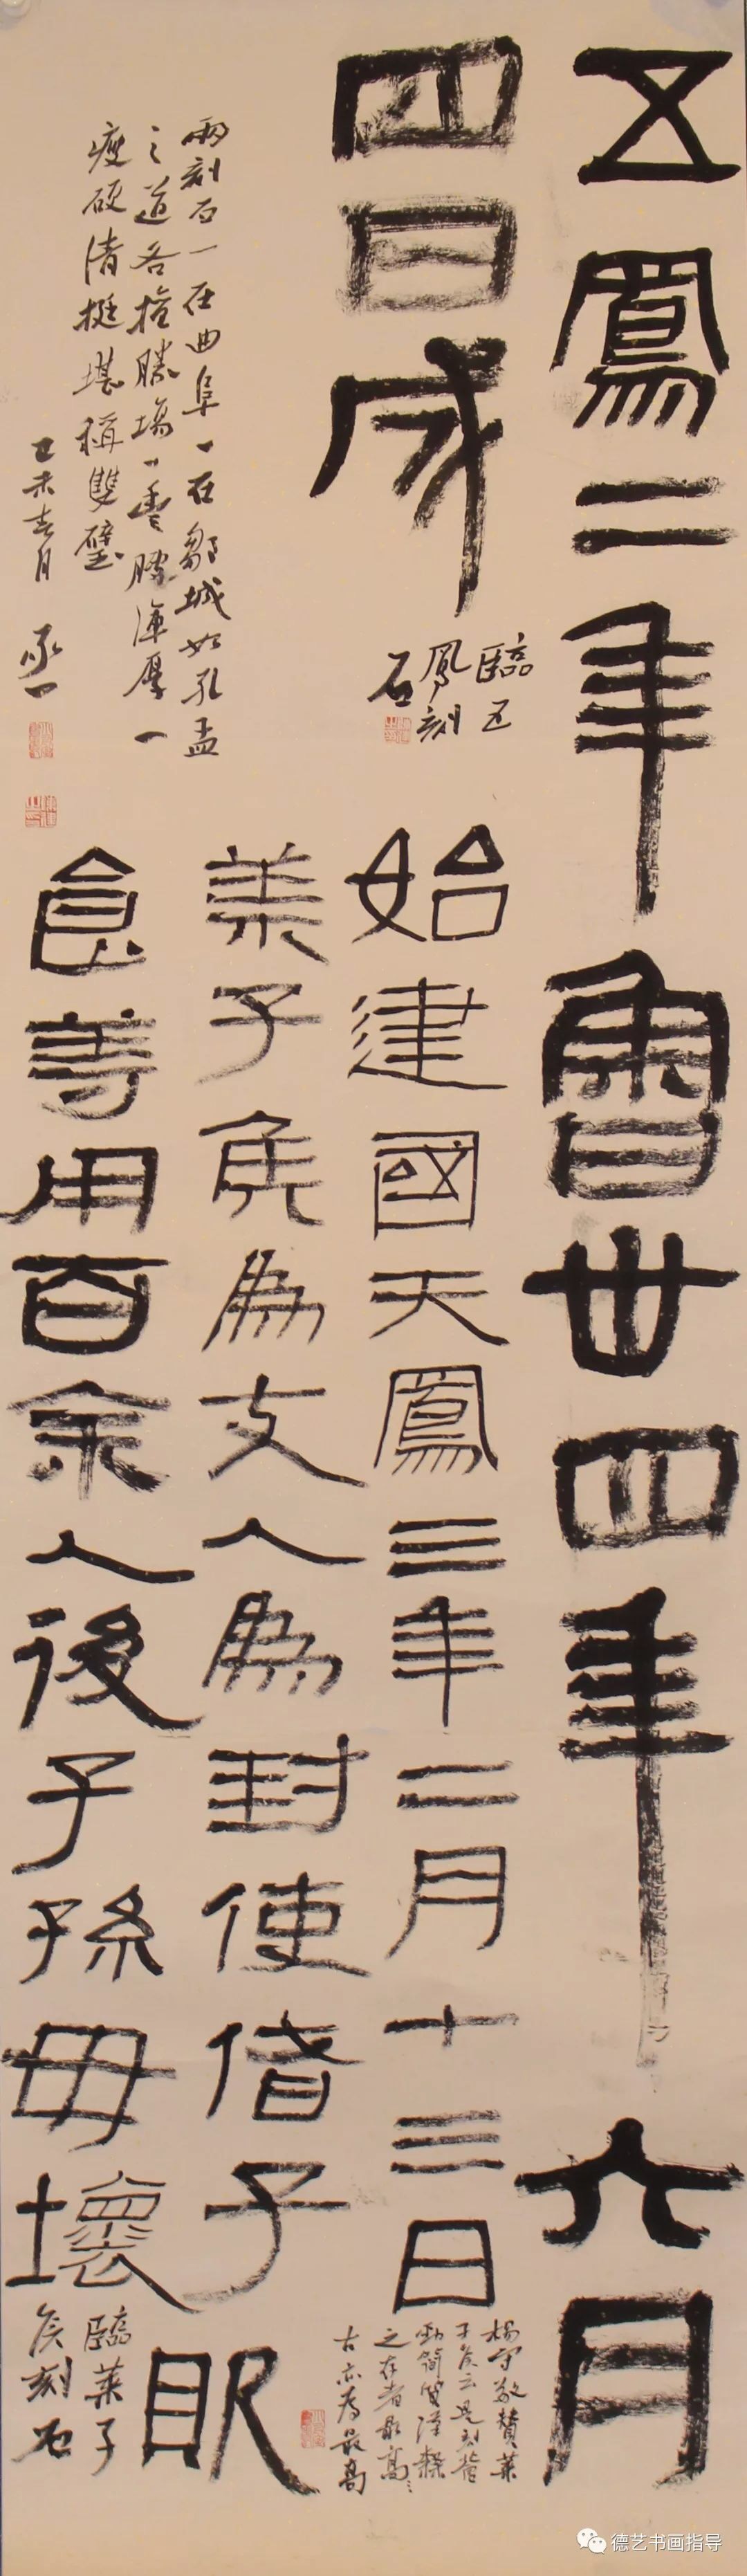 五鳳二年魯丗四年六月
四日成
臨五
鳳刻
石
始建國天鳳三年二月十三日
萊子侯為支人為封使偖子
食等用百余人後子孫毋壞
臨萊子
侯刻石
兩刻石一在曲阜一在鄒城如孔孟
之道各擅勝場一雄勝渾厚一
瘦硬清挺堪稱雙璧
乙未春月 承一
楊守敬贊萊
子侯云是刻蒼
勁簡質漢隸
之存者最高
古亦為最高
德艺书画指导